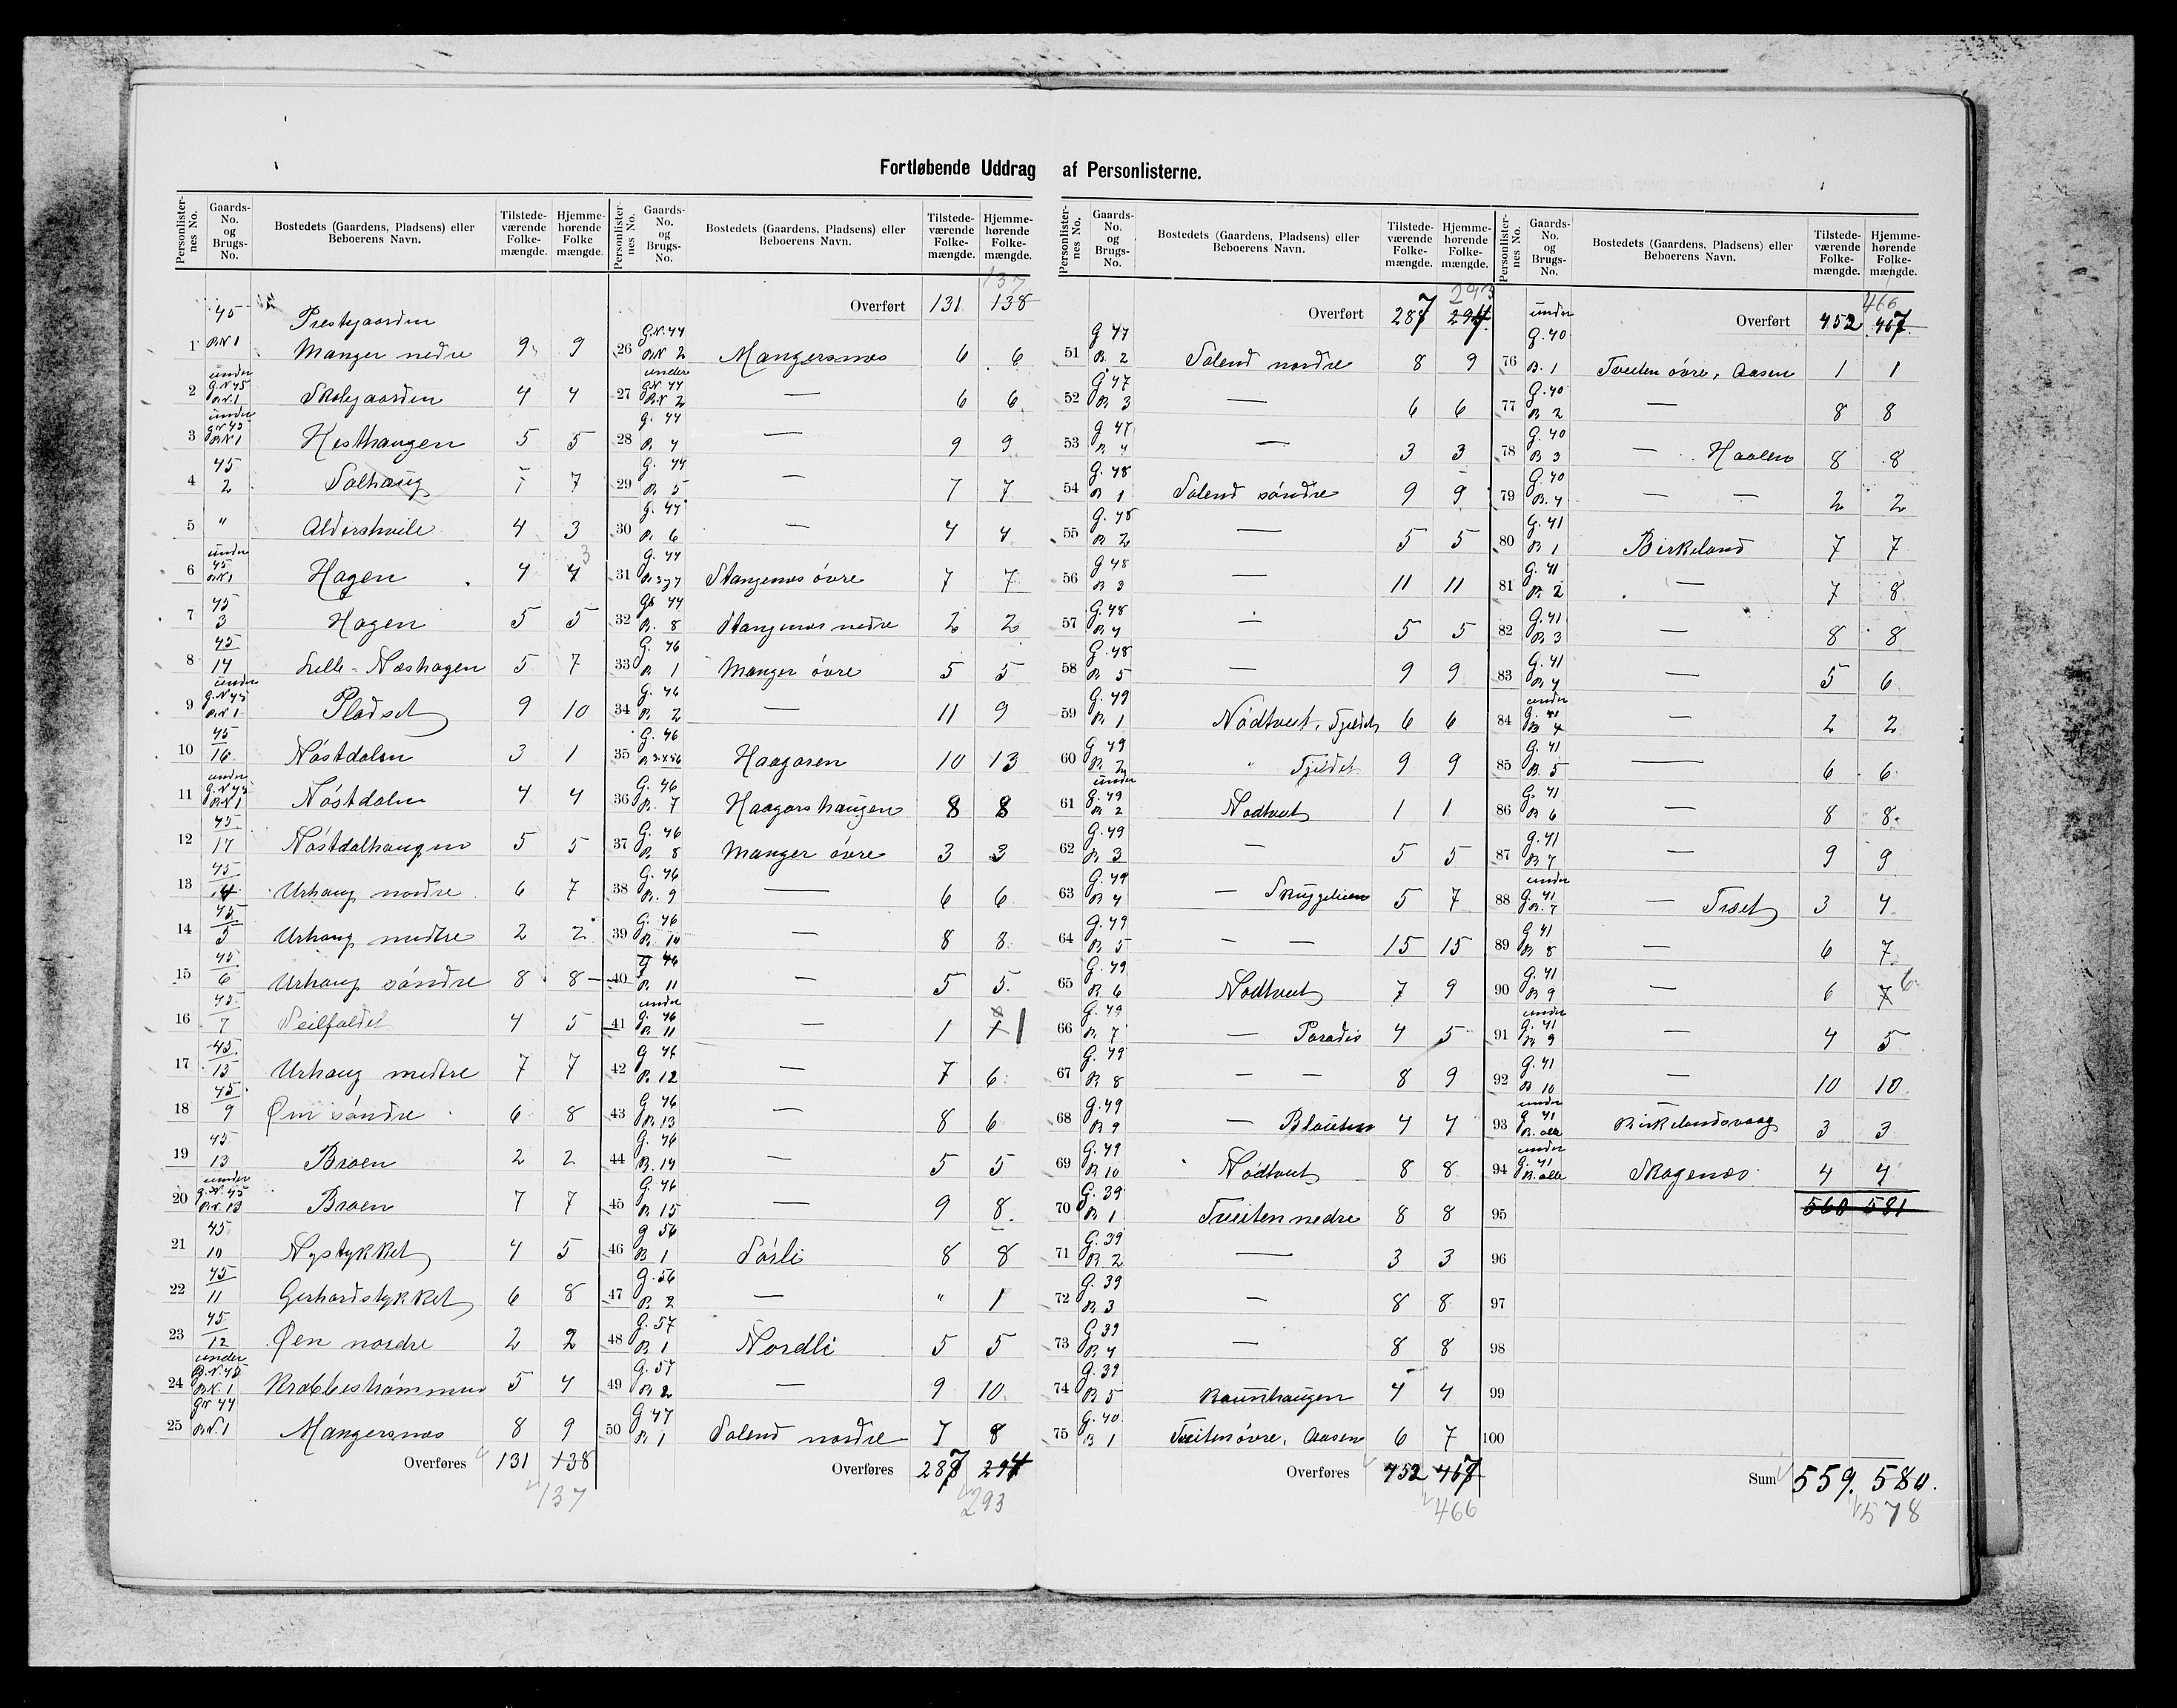 Fortløbende Uddrag af Personlisterne.
Personlisternes No. Gaards-No. og Brugs-No. Bostedets (Gaardens, Pladsens) eller Beboerens Navn. Tilstedeværende Folkemængde. Hjemmehørende Folkemængde.
45 Prestegaarden
1 B.N 1 Manger nedre 9 9
2 under G.N 45 B.N. 1 Skolegaarden 4 4
3 under G.N 45 B.N 1 Hesthaugen 5 5
4 45 2 Solhaug 7 7
5 " Aldershvile 4 3
6 under 45 B.N 1 Hagen 4 4 3
7 45 3 Hagen 5 5
8 45 14 Lille-Næshagen 5 7
9 under G.N 45 B.N 1 Pladset 9 10
10 45 16 Nöstdalen 3 1
11 under G.N 45 B.N 1 Nöstdalen 4 4
12 45 17 Nöstdalhaugen 5 5
13 45 4 Urhaug nordre 6 7
14 45 5 Urhaug midtre 2 2
15 45 6 Urhaug söndre 8 8
16 45 7 Seilfaldet 4 5
17 45 15 Urhaug midtre 7 7
18 45 9 Øen söndre 6 8
19 45 13 Broen 2 2
20 under G.N. 45 B.N. 13 Broen 7 7
21 45 10 Nystykket 4 5
22 45 11 Gerhardstykket 6 8
23 45 12 Øen nordre 2 2
24 under G.N. 45 B.N. 1 Krabbeströmmen 5 4
25 G.N 44 B.N. 1 Mangersnes 8 9
Overføres 131 138
137
137
Overført 131 138
26 G.N. 44 B.N 2 Mangersnes 6 6
27 under G.N. 44 B.N 2 — 6 6
28 G. 44 B. 4 — 9 9
29 G. 44 B. 5 — 7 7
30 G. 44 B. 6 — 4 4
31 G. 44 B. 3 & 7 Stangenes övre 7 7
32 G. 44 B. 8 Stangenes nedre 2 2
33 G. 46 B. 1 Manger övre 5 5
34 G. 46 B. 2 — 11 9
35 G. 46 Haagasen 10 13
36 G. 46 B. 7 Haagarshaugen 8 8
37 G. 46 B. 8 Manger övre 3 3
38 G. 46 B. 9 — 6 6
39 G. 46 B. 10 — 8 8
40 G 46 B. 11 — 5 5
41 under G. 46 B. 11 — 1 1
42 G 46 B. 12 — 7 6
43 G 46 B. 13 — 8 6
44 G. 46 B. 14 — 5 5
45 G. 46 B. 15 — 9 8
46 G 56 B 1 Sörli 8 8
47 G. 56 B. 2 — " 1
48 G. 57 B 1 Nordli 5 5
49 G. 57 B 2 — 9 10
50 G 47 B. 1 Toland nordre 7 8
Overføres 287 294
293
293
Overført 287 294
51 G 47 B. 2 Toland nordre 8 9
52 G 47 B 3 — 6 6
53 G 47 B 4 — 3 3
54 G. 48 B 1 Toland söndre 9 9
55 G. 48 B 2 — 5 5
56 G 48 B 3 — 11 11
57 G. 48 B 4 — 5 5
58 G. 48 B 5 — 9 9
59 G. 49 B 1 Nödtveit, Fjeldet 6 6
60 G 49 B. 2 " Fjeldet 9 9
61 under G. 49 B 2 Nodtveit 1 1
62 G. 49 B 3 — 5 5
63 G. 49 B 4 — Skuggelien 5 7
64 G. 49 B 5 — — 15 15
65 G. 49 B 6 Nodtveit 7 9
66 G. 49 B. 7 — Paradis 4 5
67 G. 49 B 8 — — 8 9
68 G. 49 B 9 — Blauten 4 4
69 G. 49 B 10 Nödtveit 8 8
70 G. 39 B 1 Tveiten nedre 8 8
71 G. 39 B 2 — 3 3
72 G. 39 B 3 — 8 8
73 G 39 B 4 — 8 8
74 G. 39 B 5 Raunhaugen 4 4
75 G. 40 B 1 Tveiten övre, Aasen 6 7
Overføres 452 467
466
466
Overført 452 467
76 under G. 40 B. 1 Tveiten övre, Aasen 1 1
77 G. 40 B 2 — 8 8
78 G. 40 B 3 — Haalen 8 8
79 G. 40 B. 4 — — 2 2
80 G. 41 B 1 Birkeland 7 7
81 G. 41 B. 2 — 7 8
82 G. 41 B 3 — 8 8
83 G. 41 B 4 — 5 6
84 under G. 41 B 4 — 2 2
85 G. 41 B. 5 — 6 6
86 G. 41 B 6 — 8 8
87 G. 41 B 7 — 9 9
88 under G. 41 B. 7 — Træet 3 4
89 G 41 B 8 — 6 7
90 G. 41 B 9 — 6 7 6
91 under G. 41 B 9 — 4 5
92 G. 41 B 10 — 10 10
93 under G 41 B. alle Birkelandsvaag 3 3
94 under G. 41 B. alle Skagenes 4 4
95 560 581
96
97
98
99
100
Sum 559. 580.
578